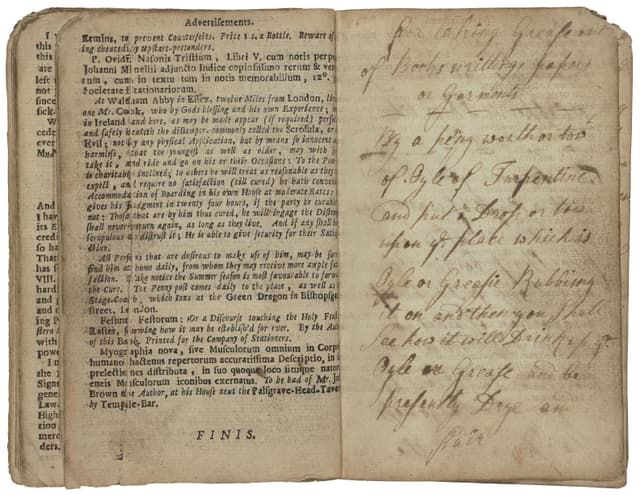 Advertisements.
Ermins, to prevent Counterfeits. Price 1 s. a Bottle. Beware of
ing cheated by upstart-pretenders.
P. Ovidii Nasonis Tristium, Libri V. cum notis perpe
Johannii Minellii adjuncto Indice copiosissimo rerum & ver
tum, cum in textu tum in notis memorabilium, 12°.
Societate Stationariorum.
At Waltham Abby in Essex, twelve Miles from London, li
one Mr. Cook, who by Gods blessing and his own Experience;
in Ireland and here, as may be made appear (if required) perf
and safely healeth the distemper commonly called the Scrofula, or
Evil; not by any physical Application, but by means so innocent a
harmless, that the youngest as well as older, may with
take it, and ride and go on his or their Occasions: To the Poor
is charitably inclined; to others he will treat as reasonable as they
expect, and require no satisfaction (till cured) he hath conveni
Accommodation of Boarding in his own House at moderate Rates:
gives his Judgment in twenty four hours, if the party be curable
not: Those that are by him thus cured, he will ingage the Distem
shall never return again, as long as they live. And if any shall be
scrupulous or distrust it; He is able to give security for their Satis
ction.
All Persons that are desirous to make use of him, may be sure
find him at home daily, from whom they may receive more ample sa
faction. Take notice the Summer season is most favourable to forw
the Cure. The Penny post comes daily to the place, as well as
Stage-Coach, which Inns at the Green Dragon in Bishopsga
street, London.
Festum Festorum: Or a Discourse touching the Holy Feast
Easter, showing how it may be establish'd for ever. By the Au
of this Book. Printed for the Company of Stationers.
Myographia nova, sive Musculorum omnium in Corp
humano hactenus repertorum accuratissima Descriptio, in
prelectiones distributa, in suo quoque loco situque natur
eneis Musculorum iconibus exernatus. To be had of Mr. Jo
Brown the Author, at his House near the Palsgrave-Head-Tave
by Temple-Bar.
FINIS.
for taking Grease out
of Books writtings papers
or Garments
By a peny worth or tow
of Oyle of Turpentine
and put a Drop or tow
upon ye. place which is
Oyle or Greasie Rubbing
it on and then you shall
See how it will Drink up ye.
Oyle or Grease and be
presently Drye and
fair